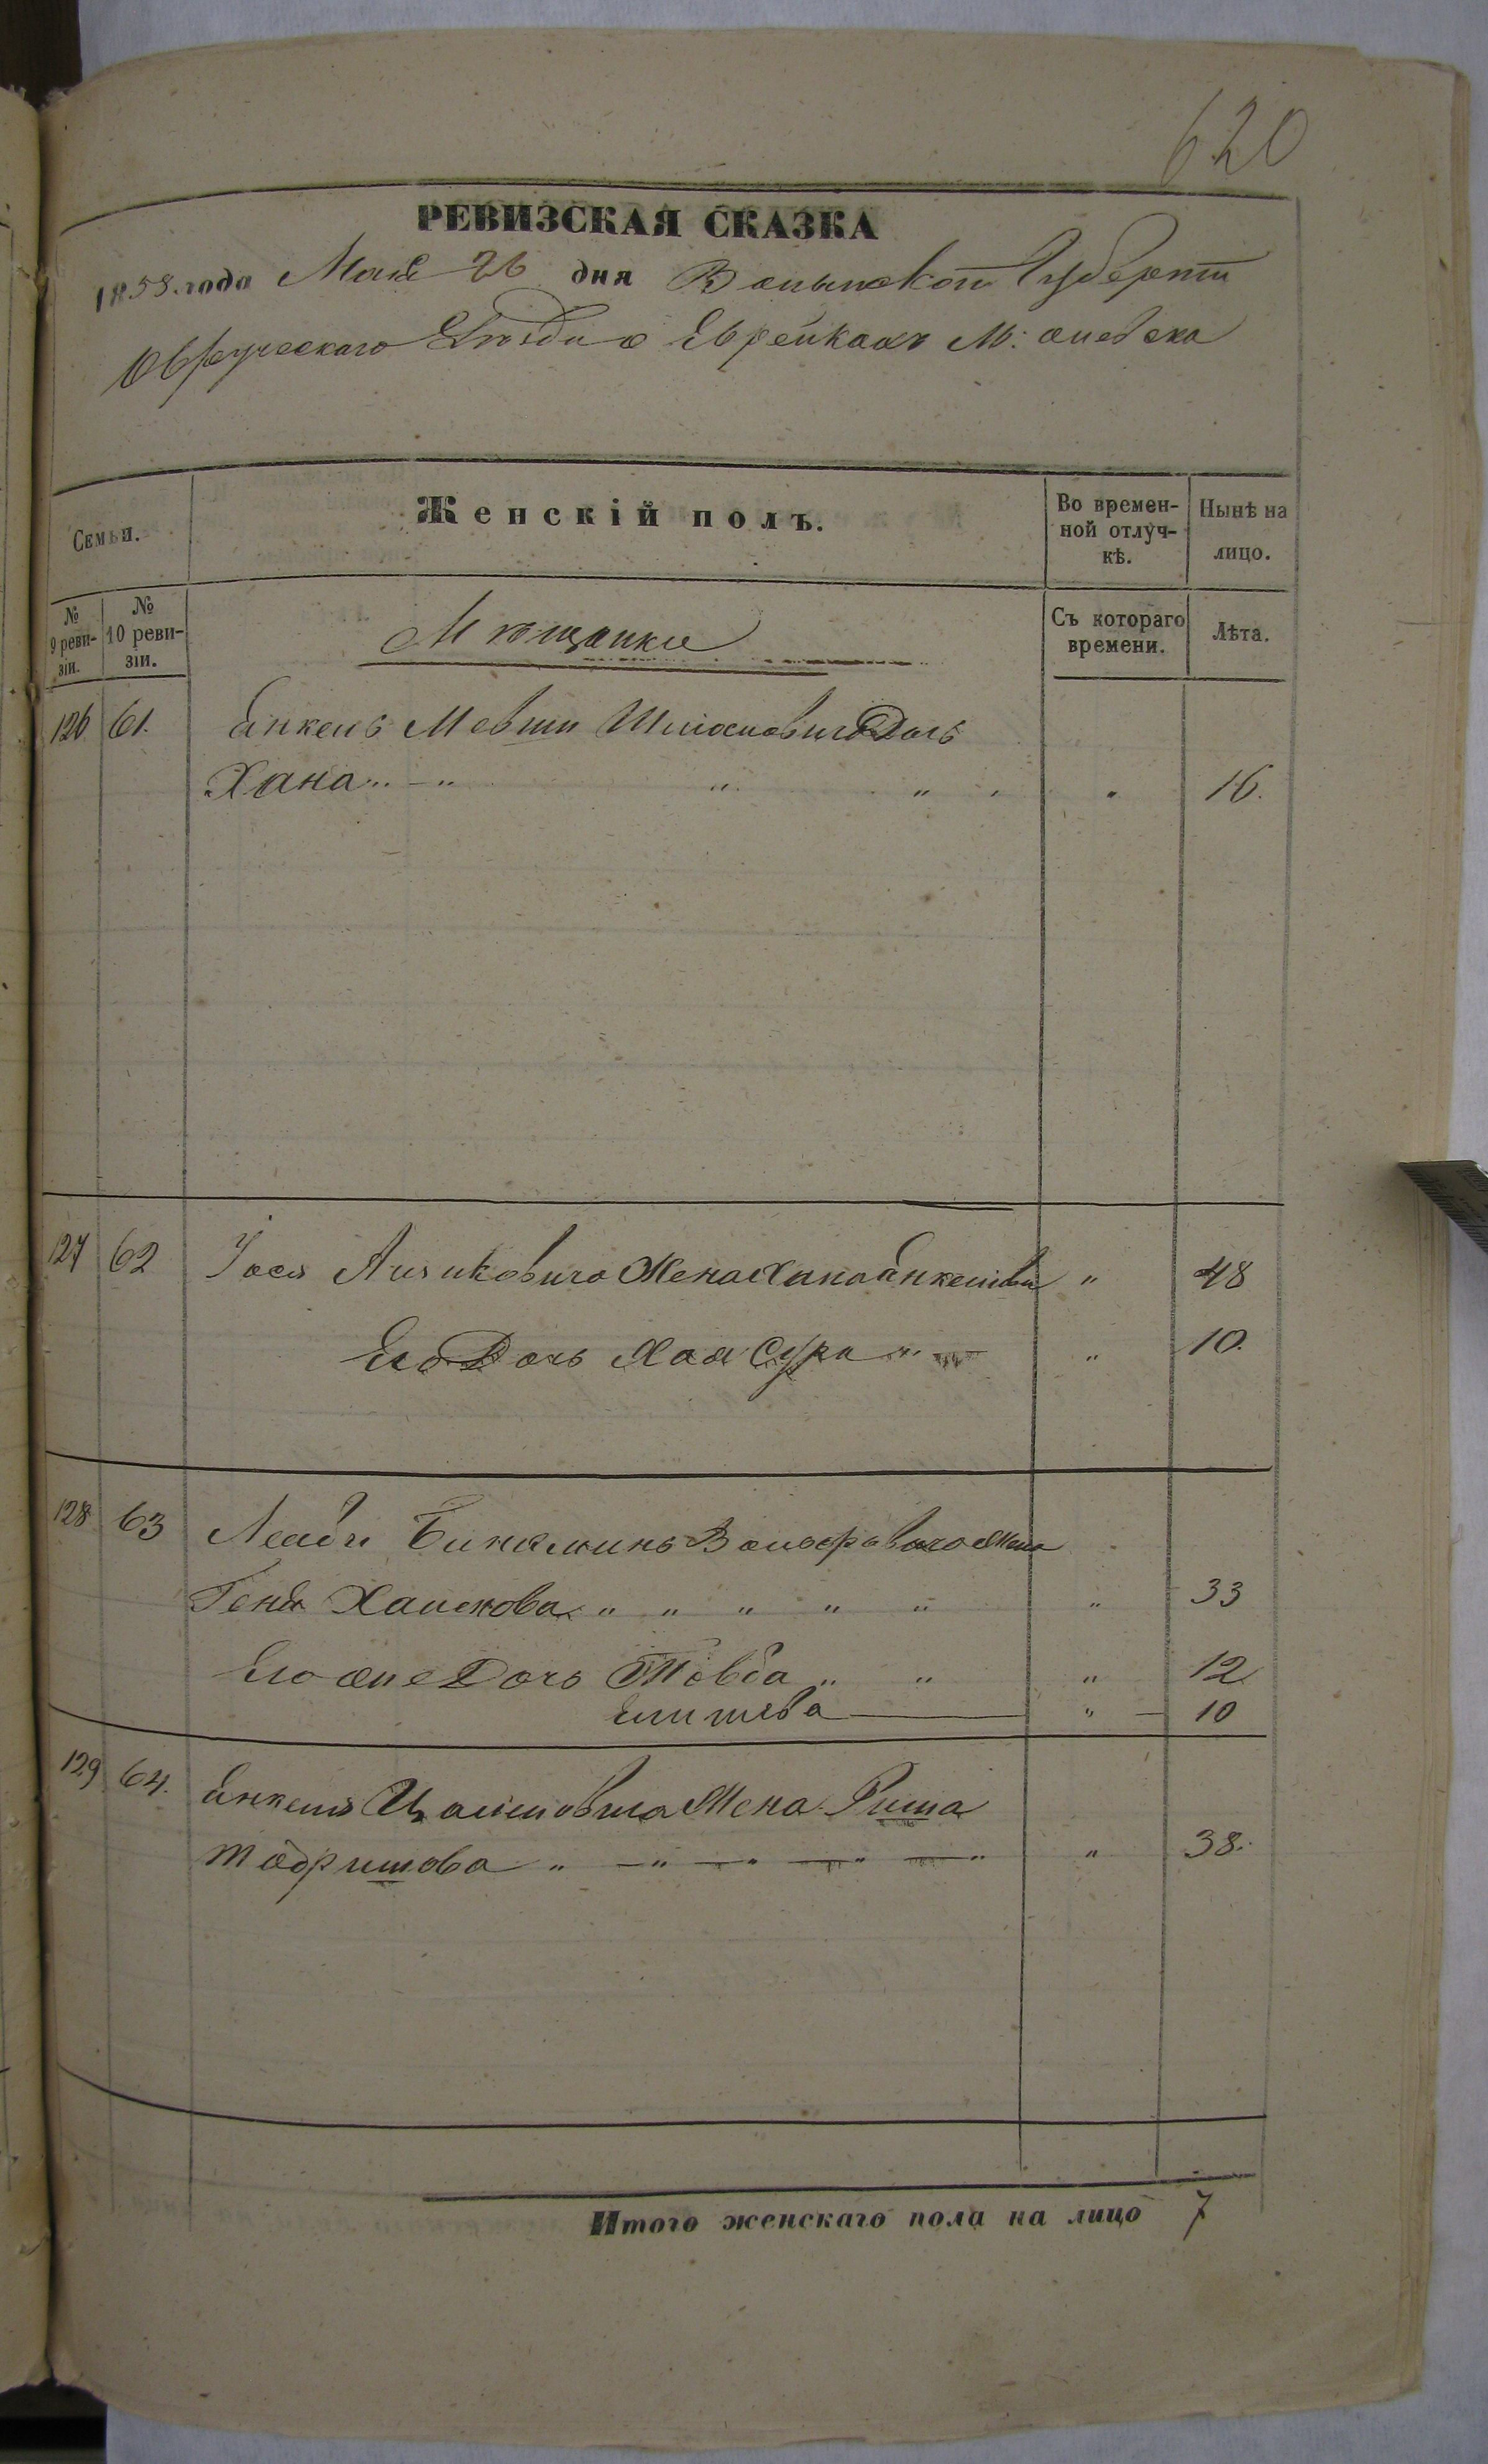 620
РЕВИЗСКАЯ СКАЗКА
1858 года Мая 26 дня Волынской Губерніи
Овручского Уѣзда о Еврейкахъ М: Олевска
Семьи.
Женскій полъ.
Во времен-
ной отлуч-
кѣ.
Нынѣ на
лицо.
№
9 реви-
зіи.
№
10 реви-
зіи.
Мѣщанки
Съ котораго
времени.
Лѣта.
126 61. Янкель Мевши Дочь
Хана 16.
127 62 Іося Айзиковича Жена Хана Янкелева 48
Его Дочь Хая Сура 10.
128 63 Лейбы Биняминъ Вольфовича Жена
Геня Хаимова 33
Его же Дочь Товба 12
Елишева 10
129 64. Янкеля Жена Риша
38.
Итого женскаго пола на лицо 7